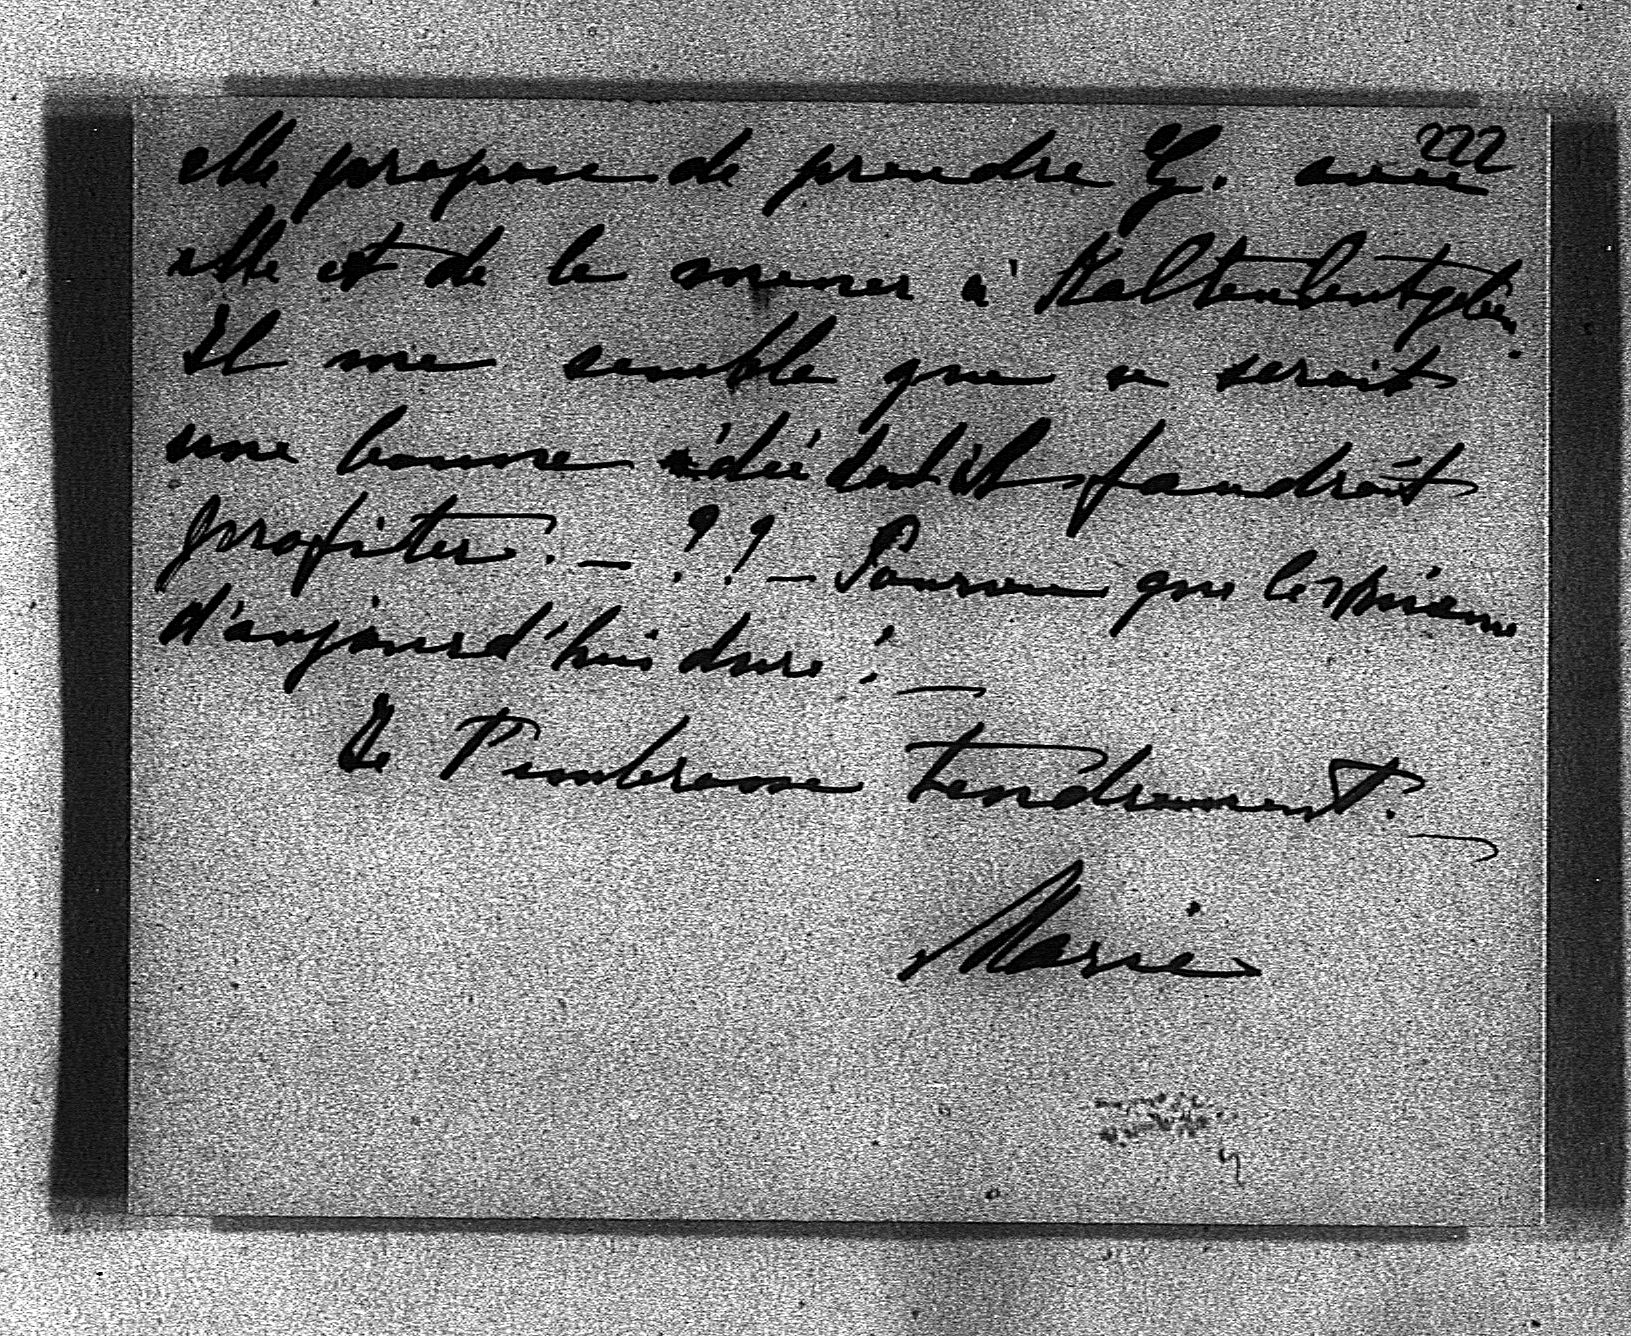 222
elle propose de prendre G. avec
elle et de le mener à Kaltenleutgeben.
Il me semble que ce serait
une bonne idée dont il faudrait
profiter. — ?? — Pourvu que le mieux
d'aujourd'hui dure! —
Je t'embrasse tendrement. —
Marie